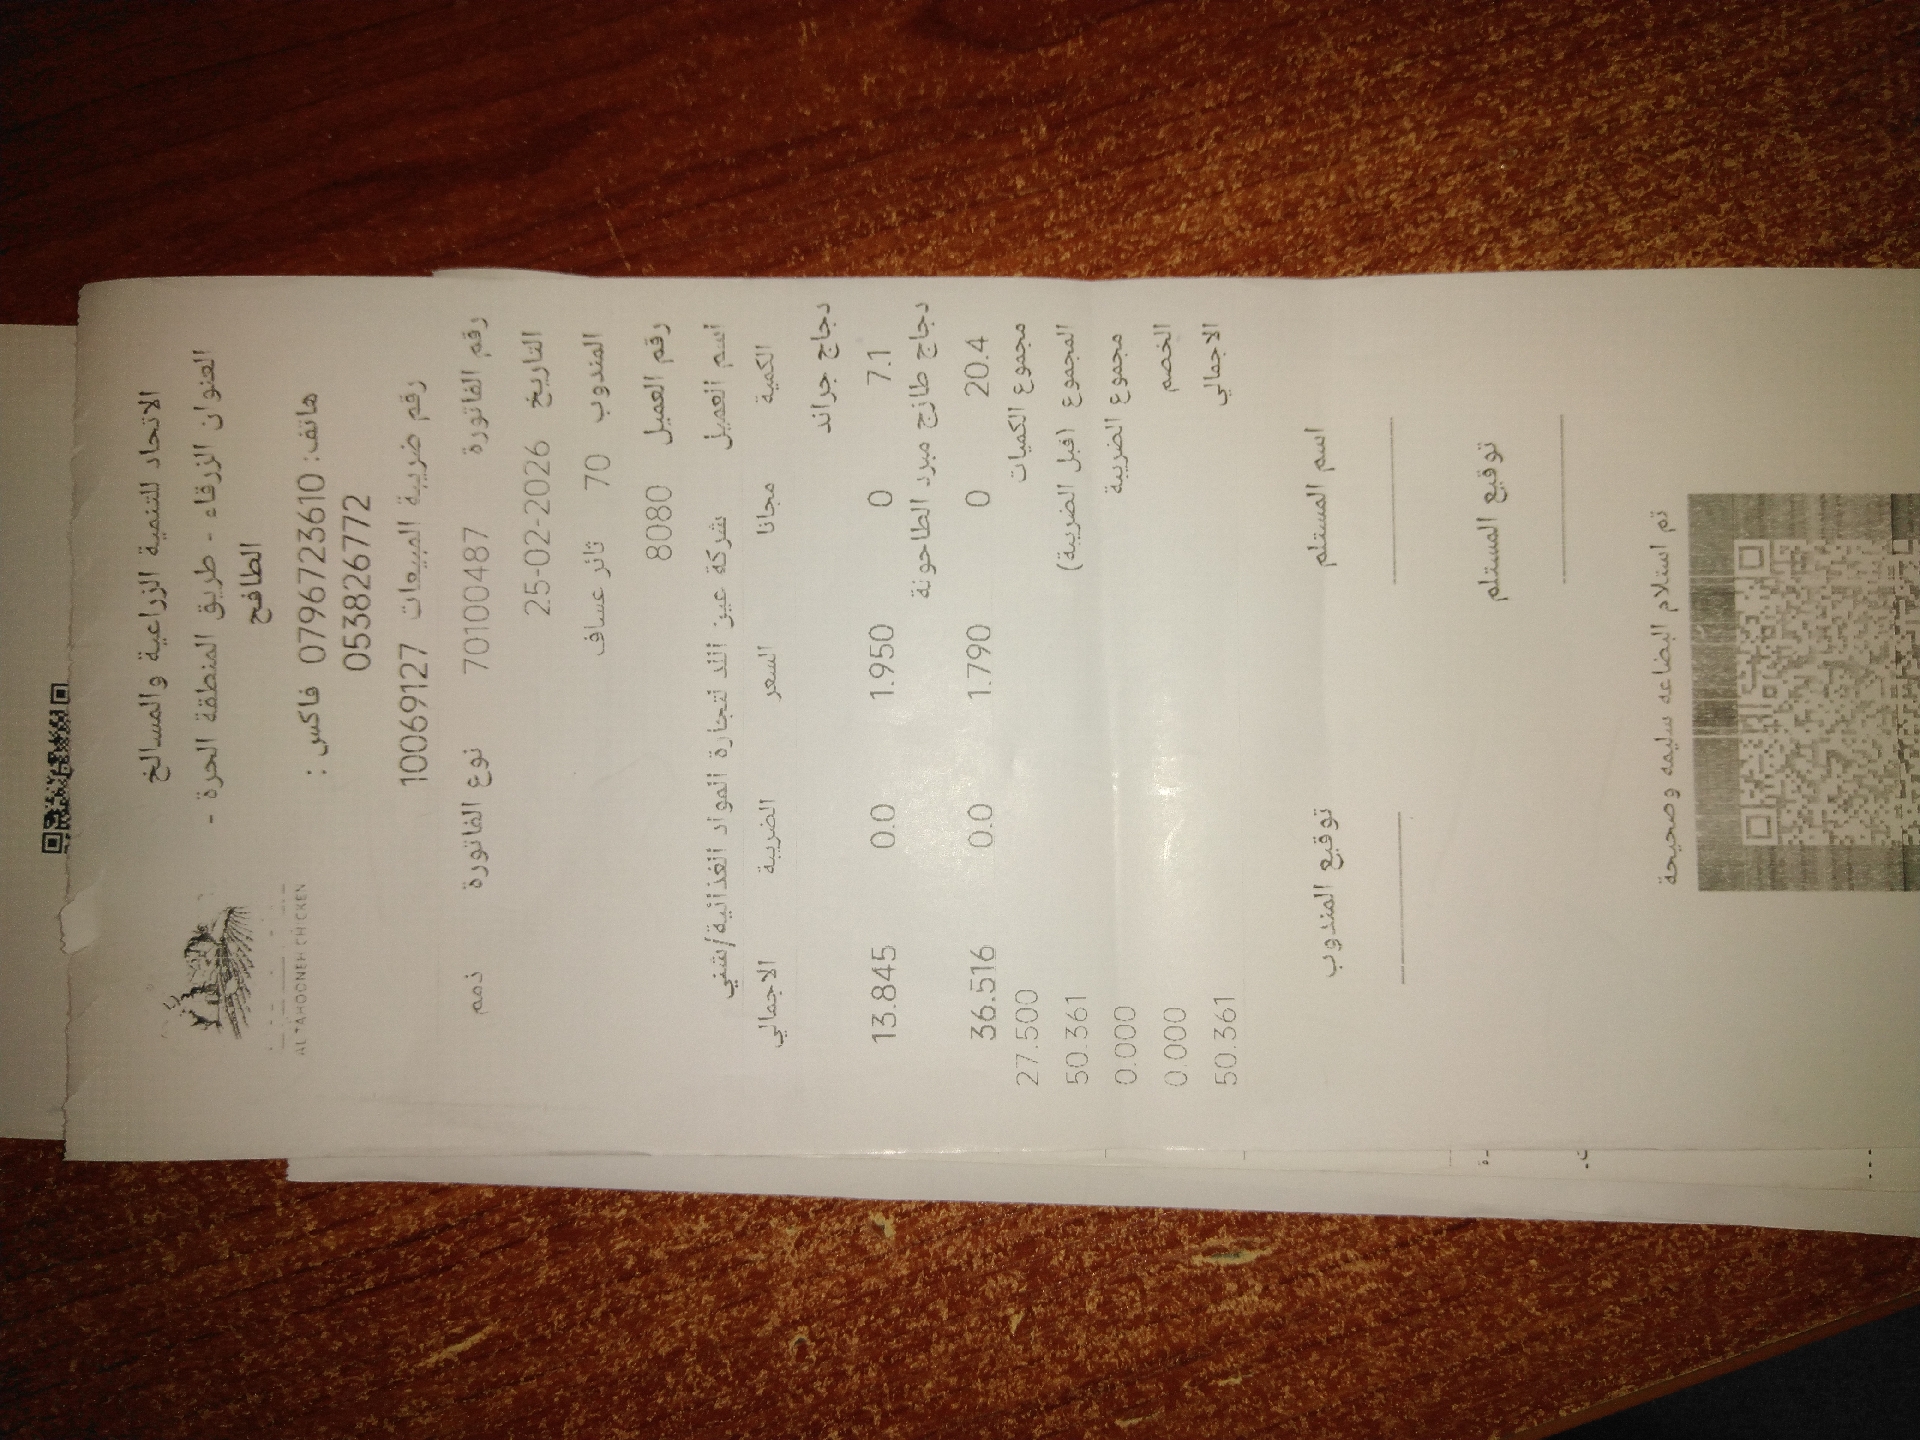 الاتحاد للتنمية الزراعية والمسالخ
العنوان الزرقاء - طريق المنطقة الحرة -
الطافح
هاتف: 0796723610 فاكس :
0538826772
رقم ضريبة المبيعات 10069127
AL TAHOONEH CHICKEN
رقم الفاتورة 70100487 نوع الفاتورة ذمم
التاريخ 25-02-2026
المندوب 70 ثائر عساف
رقم العميل 8080
اسم العميل شركة عين اللد لتجارة المواد الغذائية/شفي
الكمية مجانا السعر الضريبة الاجمالي
دجاج جراند
7.1 0 1.950 0.0 13.845
دجاج طازج مبرد الطاحونة
20.4 0 1.790 0.0 36.516
مجموع الكميات 27.500
المجموع (قبل الضريبة) 50.361
مجموع الضريبة 0.000
الخصم 0.000
الاجمالي 50.361
اسم المستلم توقيع المندوب
توقيع المستلم
تم استلام البضاعه سليمه وصحيحة